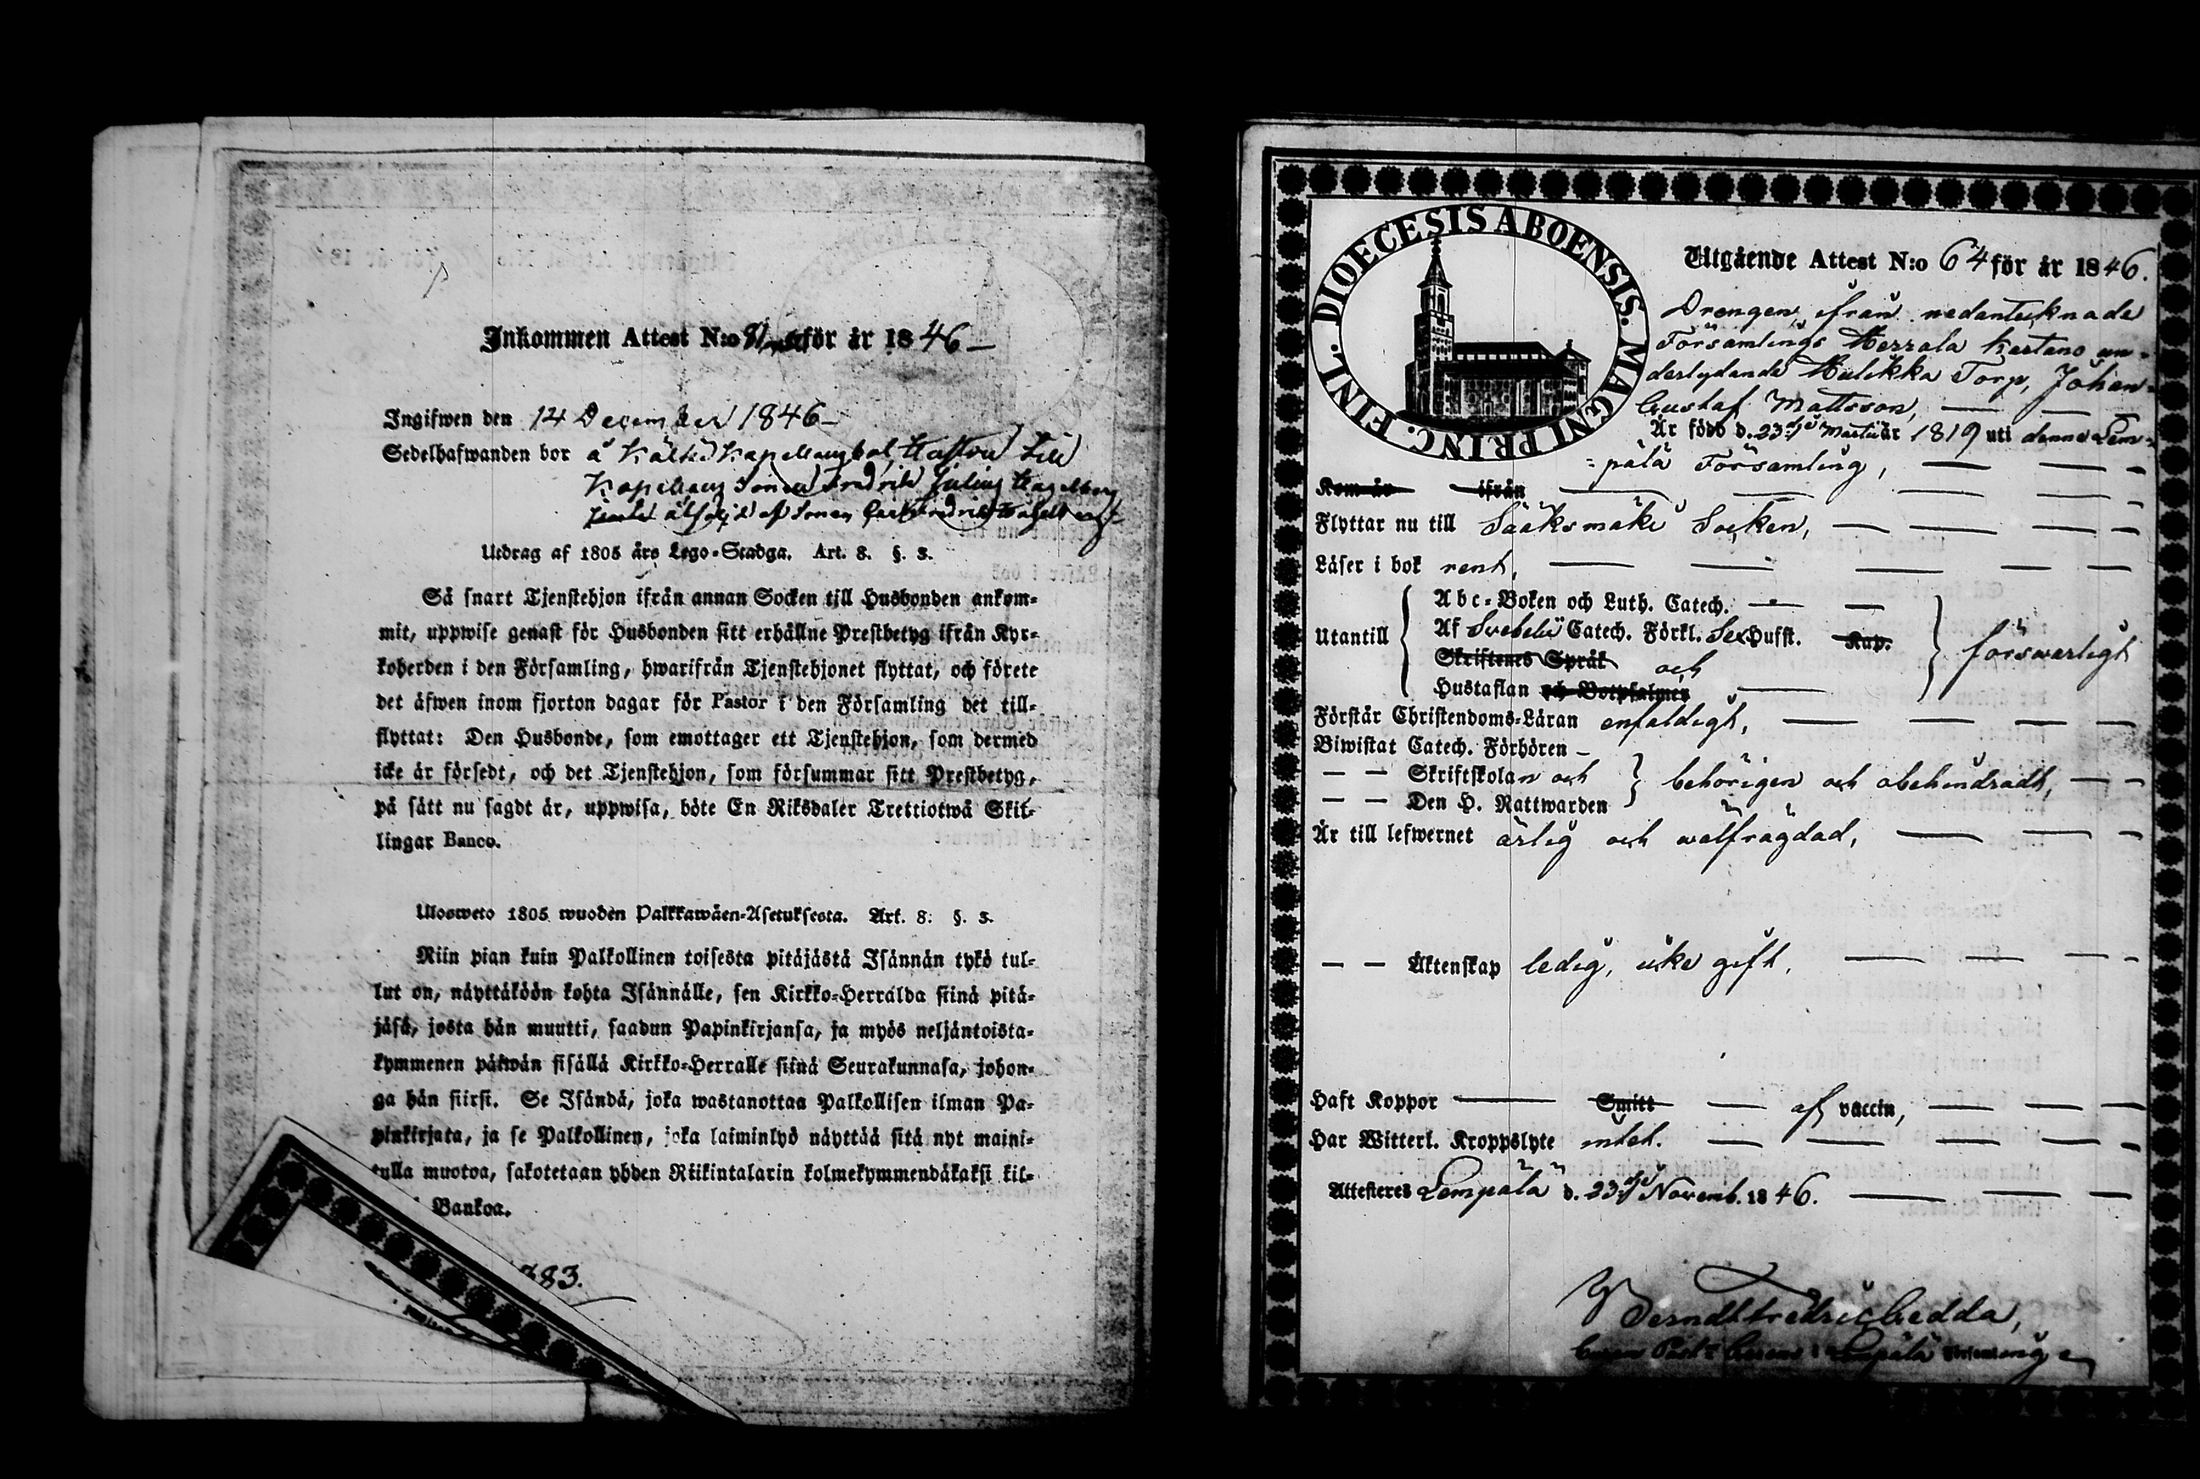 Inkommen Attest N:o för år 1846
Ingifwen den 14 December 1846
Sedelhafwanden bor å
Utdrag af 1805 års Lego-Stadga. Art. 8. §. 3.
Så snart Tjenstehjon ifrån annan Socken till Husbonden ankom-
mit, uppwise genast för Husbonden sitt erhållne Prestbetyg ifrån Kyr-
koherden i den Församling, hwarifrån Tjenstehjonet flyttat, och förete
det äfwen inom fjorton dagar för Pastor i den Församling det till-
flyttat: Den Husbonde, som emottager ett Tjenstehjon, som dermed
icke är försedt, och det Tjenstehjon, som försummar sitt Prestbetyg,
på sätt nu sagdt är, uppwisa, böte En Riksdaler Trettiotwå Skil-
lingar Banco.
Ulosweto 1805 wuoden Palkkawäen-Asetuksesta. Art. 8. §. 3.
Niin pian kuin Palkollinen toisesta pitäjästä Isännän tykö tul-
lut on, näyttäköön kohta Isännälle, sen Kirkko-Herralda siinä pitä-
jäsä, josta hän muutti, saadun Papinkirjansa, ja myös neljäntoista-
kymmenen päiwän sisällä Kirkko-Herralle siinä Seurakunnasa, johon-
ga hän siirsi. Se Isändä, joka wastanottaa Palkollisen ilman Pa-
pinkirjata, ja se Palkollinen, joka laiminlyö näyttää sitä nyt maini-
tulla muotoa, sakotetaan yhden Riikintalarin kolmekymmendäkaksi kil-
Bankoa.
383.
DIOECESIS ABOENSIS. MAGNI PRINC. FINL.
Utgående Attest N:o 64 för år 1846.
Drengen, ifrån nedantecknade
Församlings Herrala Kartano un-
derlydande Torp, Johan
Gustaf Mattsson,
Är född d. 23 Martii år 1819 uti denna Lem-
pälä Församling,
Kom år ifrån
Flyttar nu till Sääksmäki Socken,
Läser i bok rent,
Utantill
Abc-Boken och Luth. Catech.
Af Svebelii Catech. Förkl. Sex Hufst. Kap.
Skriftenes Språk och
Hustaflan och Botpsalmer
försvarligt
Förstår Christendoms-Läran enfaldigt,
Biwistat Catech. Förhören
Skriftskolan och
Den H. Nattwarden
behörigen och obehindradt,
Är till lefwernet ärlig och wälfrägdad,
Äktenskap ledig, icke gift,
Haft Koppor Smitt af vaccin,
Har Witterl. Kroppslyte intet.
Attesteres Lempälä d. 23 Novemb. 1846.
Berndt Fredric Gedda,
Lempälä Församling